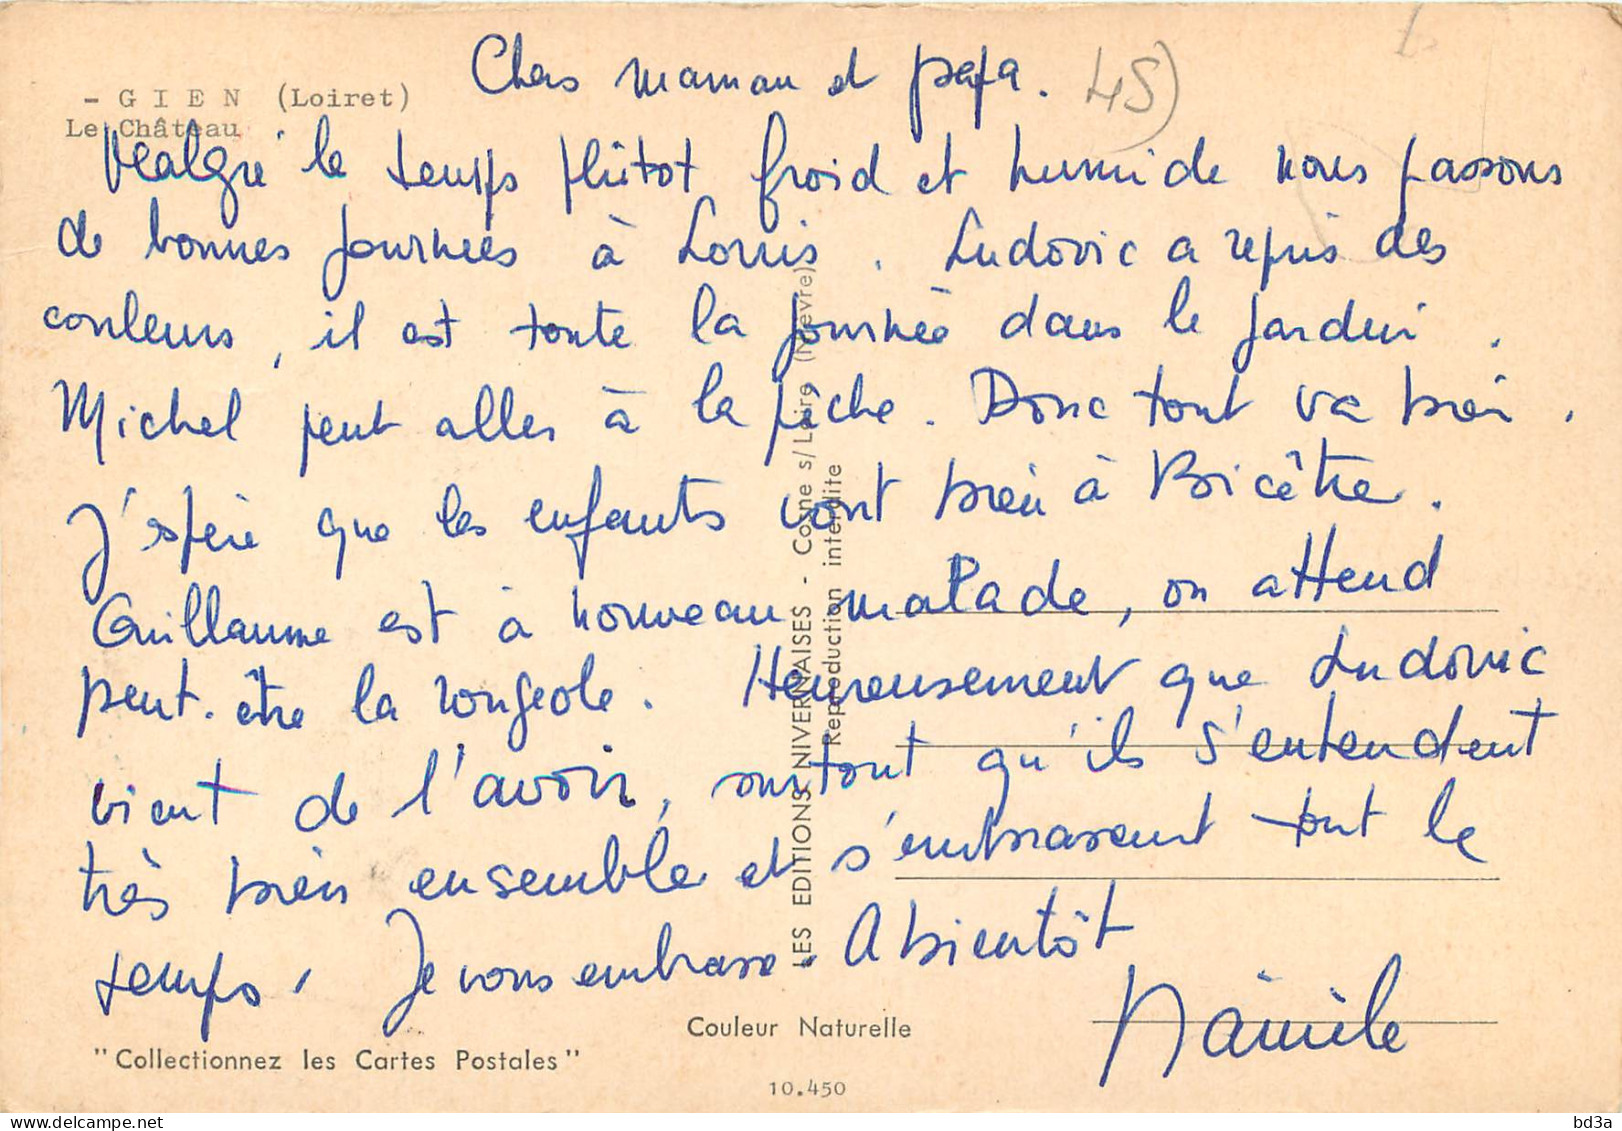 - GIEN (Loiret)
Le Château
Chers maman et papa.
45)
Malgré le temps plûtot froid et humide nous passons
de bonnes journées à Lorris. Ludovic a repris des
couleurs, il est toute la journée dans le jardin.
Michel peut aller à la pêche. Donc tout va bien.
J'espère que les enfants vont bien à Bicêtre.
Guillaume est à nouveau malade, on attend
peut-être la rougeole. Heureusement que Ludovic
vient de l'avoir, surtout qu'ils s'entendent
très bien ensemble et s'embrassent tout le
temps. Je vous embrasse. A bientôt
Danièle
LES EDITIONS NIVERNAISES - Cosne s/ Loire (Nièvre)
Reproduction interdite
Couleur Naturelle
"Collectionnez les Cartes Postales"
10.450
bd3a